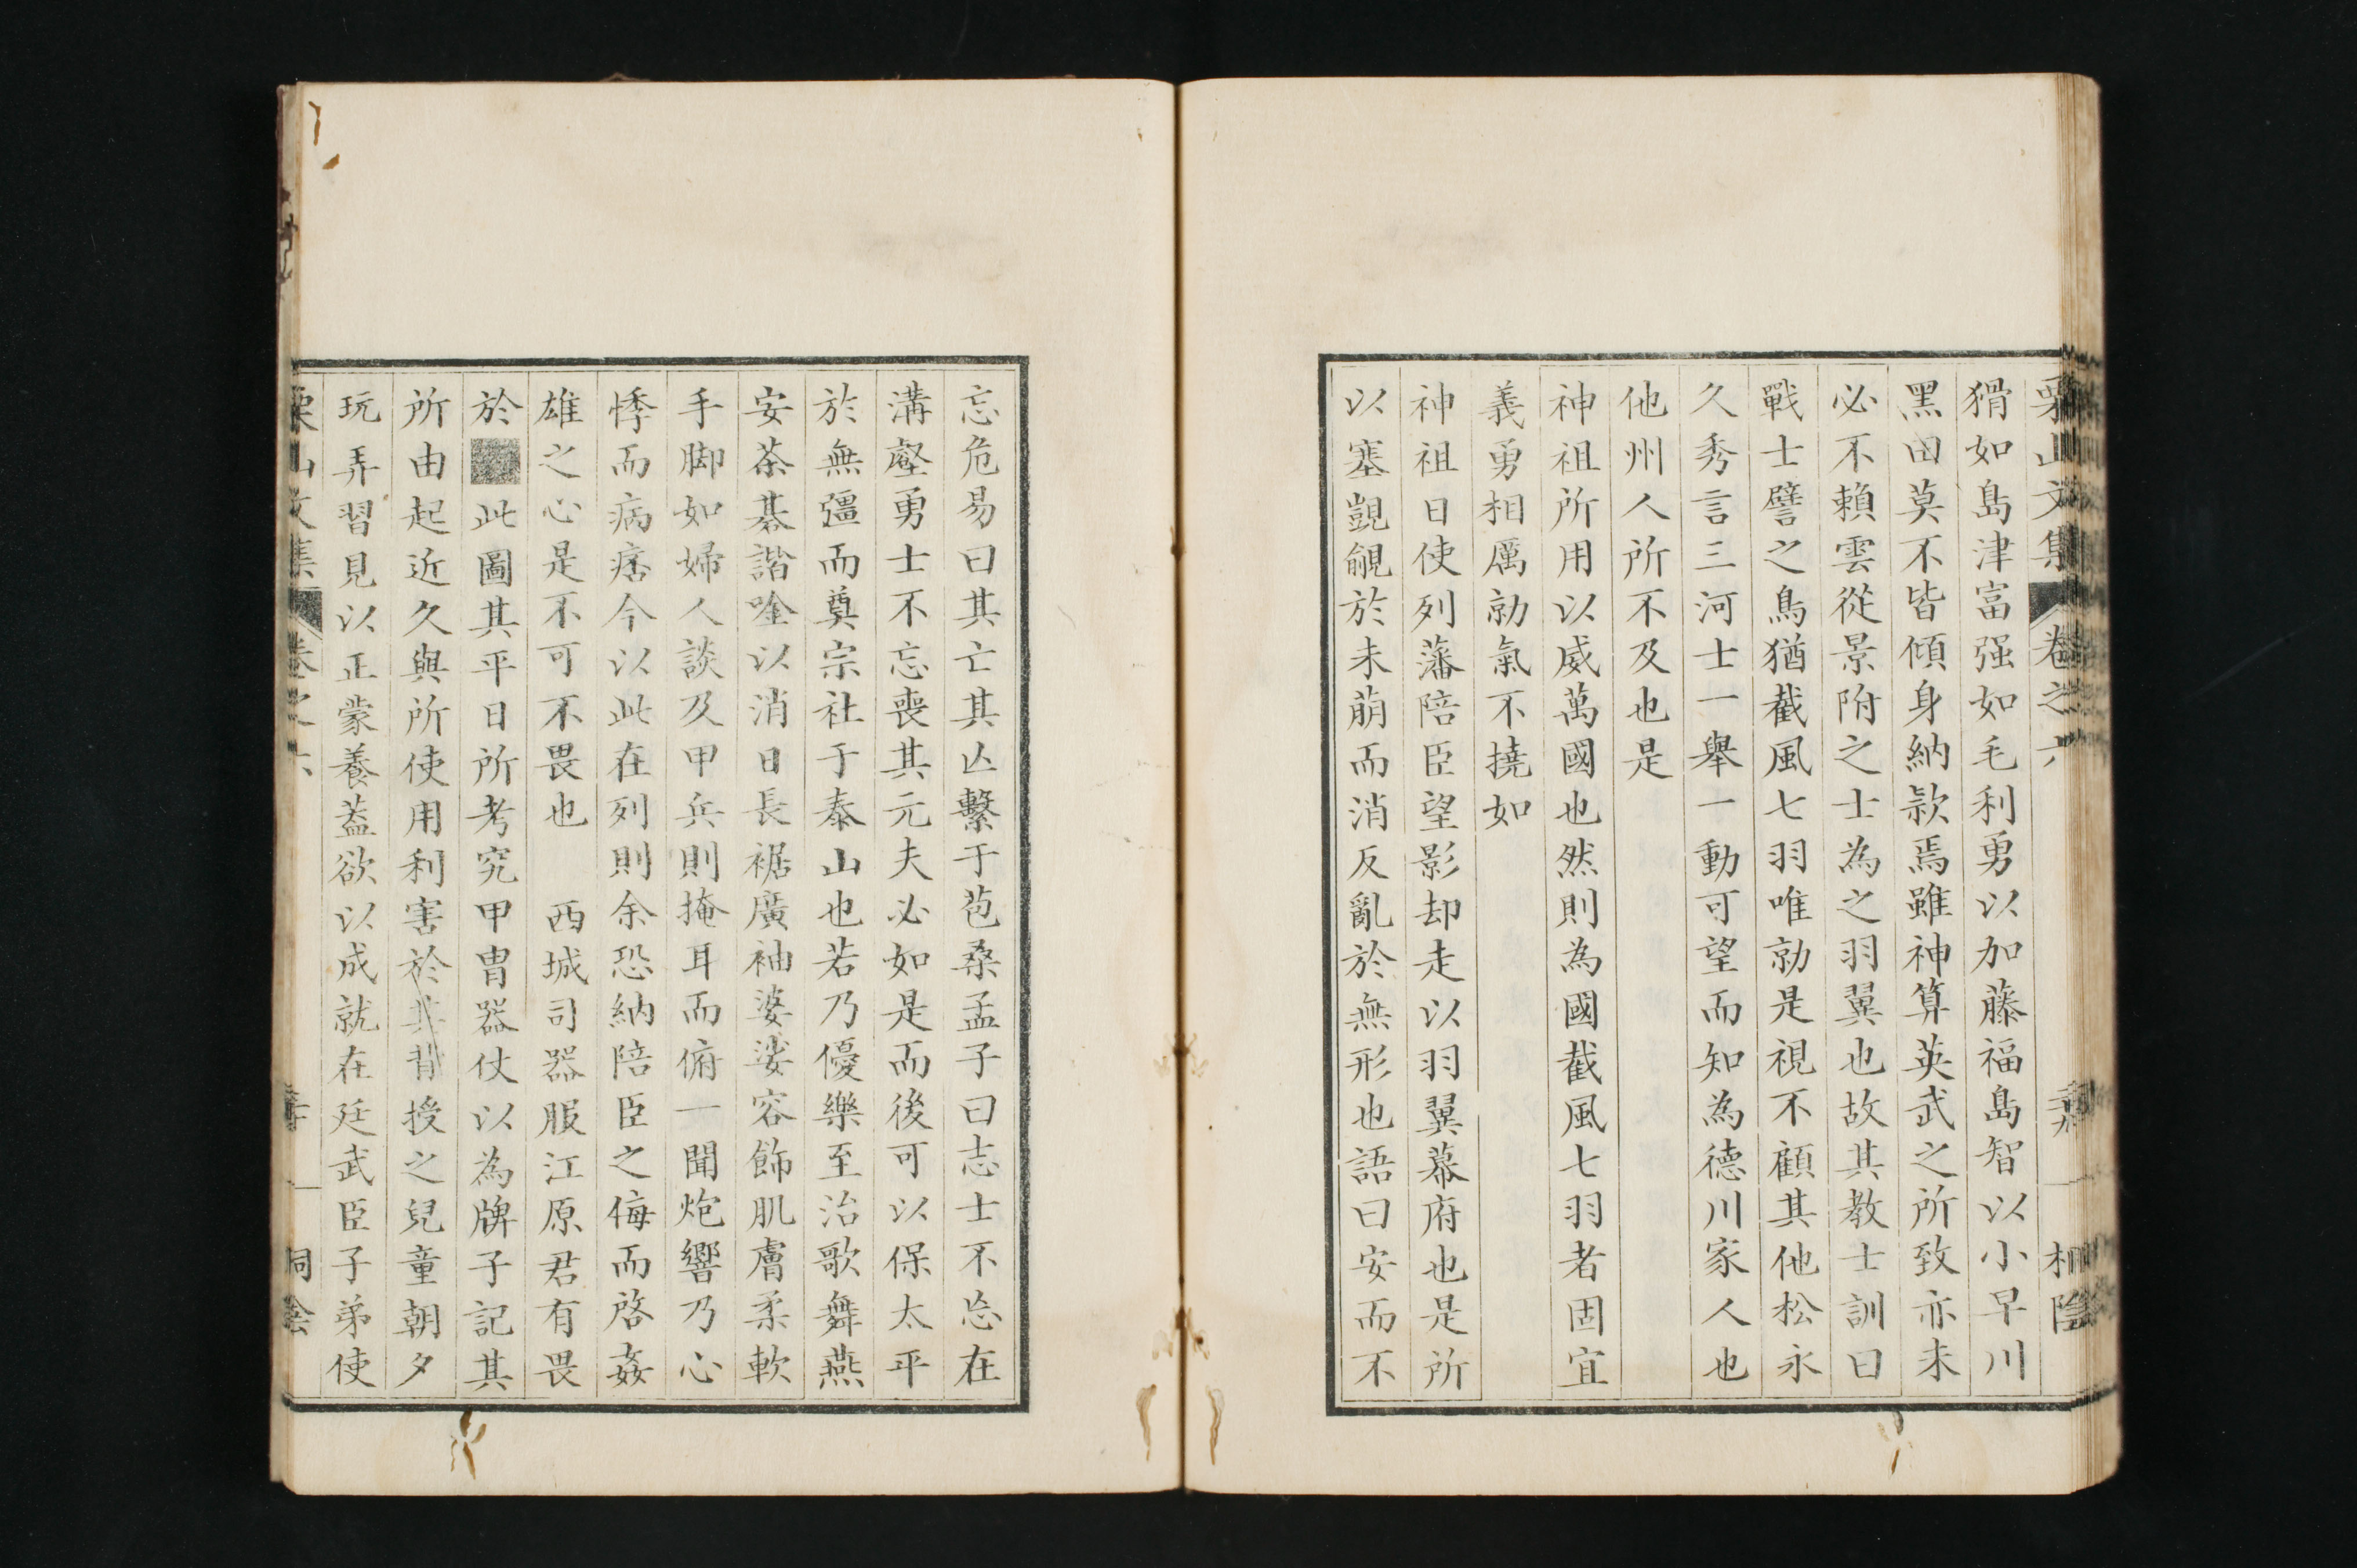 栗山文集 卷之六 桐陰
猾如島津富强如毛利勇以加藤福島智以小早川
黑田莫不皆傾身納款焉雖神算英武之所致亦未
必不賴雲從景附之士為之羽翼也故其教士訓曰
戰士譬之鳥猶截風七羽唯勍是視不顧其他松永
久秀言三河士一舉一動可望而知為德川家人也
他州人所不及也是
神祖所用以威萬國也然則為國截風七羽者固宜
義勇相厲勍氣不撓如
神祖日使列藩陪臣望影却走以羽翼幕府也是所
以塞覬覦於未萠而消反亂於無形也語曰安而不
忘危易曰其亡其亾繫于苞桑孟子曰志士不忘在
溝壑勇士不忘喪其元夫必如是而後可以保太平
於無彊而奠宗社于泰山也若乃優樂至治歌舞燕
安茶棊諧唫以消日長裾廣袖婆娑容飾肌膚柔軟
手脚如婦人談及甲兵則掩耳而俯一聞炮響乃心
悸而病痞今以此在列則余恐納陪臣之侮而啓姦
雄之心是不可不畏也 西城司器服江原君有畏
於 此圖其平日所考究甲冑器仗以為牌子記其
所由起近久與所使用利害於其背授之兒童朝夕
玩弄習見以正蒙養蓋欲以成就在廷武臣子弟使
栗山文集 卷之六